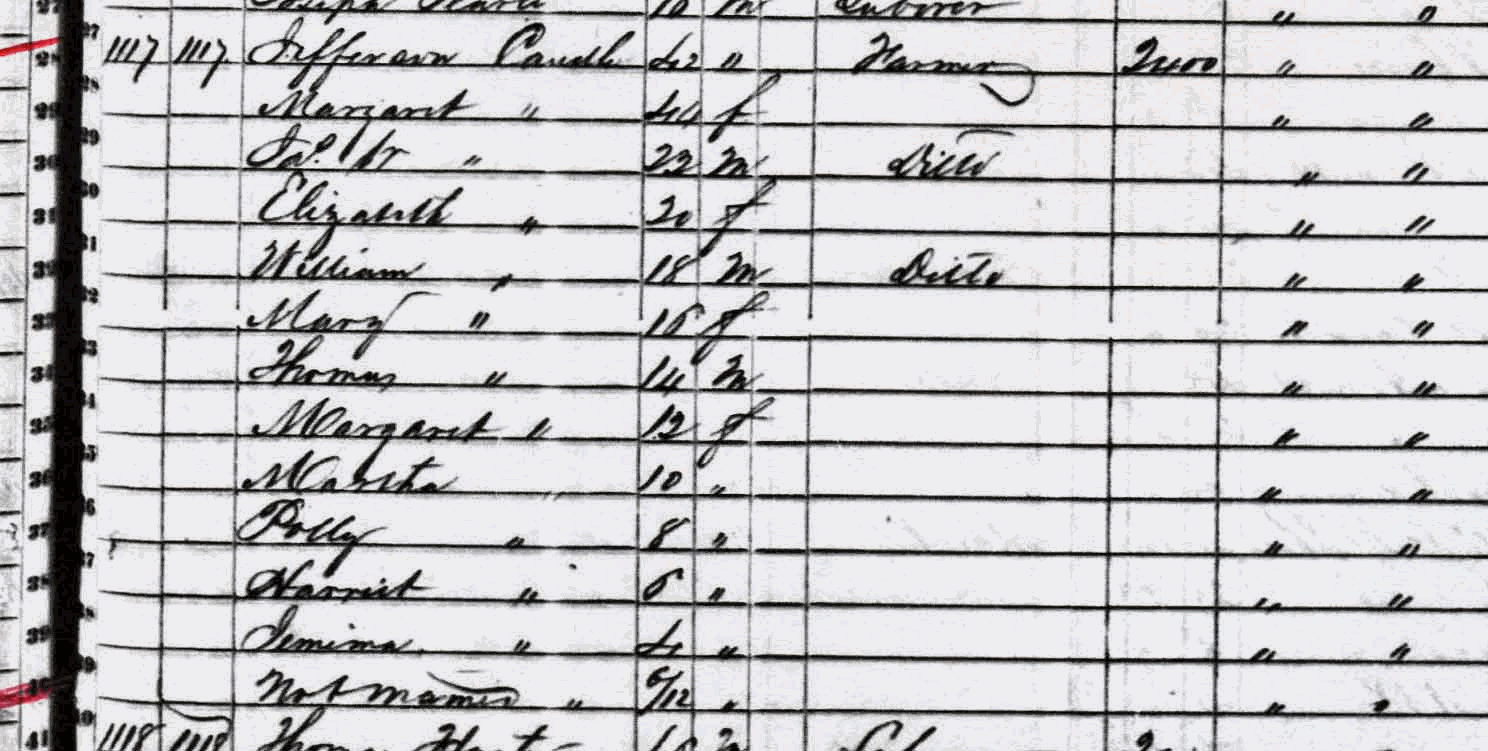 Laborer " "
1117 1117 Jefferson Caudle 42 " Farmer 2400 " "
Margaret " 44 f " "
Jas. W " 22 M Ditto " "
Elizabeth " 20 f " "
William " 18 M Ditto " "
Mary " 16 f " "
Thomas " 14 M " "
Margaret " 12 f " "
Martha " 10 " " "
Polly " 8 " " "
Harriet " 6 " " "
Jemima " 4 " " "
Not named " 6/12 " " "
1118 1118